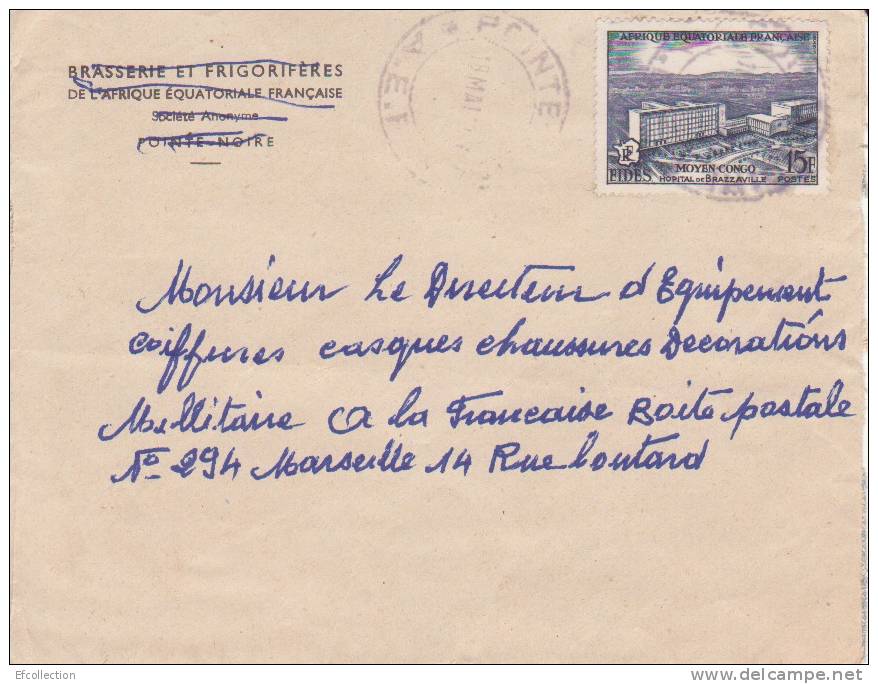 BRASSERIE ET FRIGORIFÈRES
DE L'AFRIQUE ÉQUATORIALE FRANÇAISE
Société Anonyme
POINTE-NOIRE
POINTE
A.E.F
MAI
AFRIQUE EQUATORIALE FRANÇAISE
RF
FIDES
MOYEN CONGO
HOPITAL DE BRAZZAVILLE
15F
POSTES
Monsieur Le Directeur d'Equipement
coiffures casques chaussures Decorations
Millitaire a la Francaise Boite postale
No 294 Marseille 14 Rue loutard
Efcollection
delcampe.net